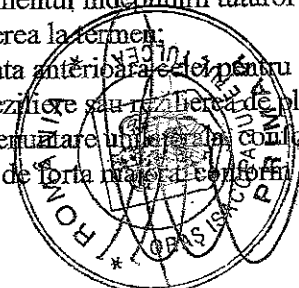 mentul îndeplinirii tuturor
erea la termen;
ata anterioară celei pentru
eziliere sau rezilierea de pl
enunțare unilaterala, conf
de forta majora conform
ROMÂNIA * JUD. TULCEA *
ORAȘ ISACCEA
PRIMAR